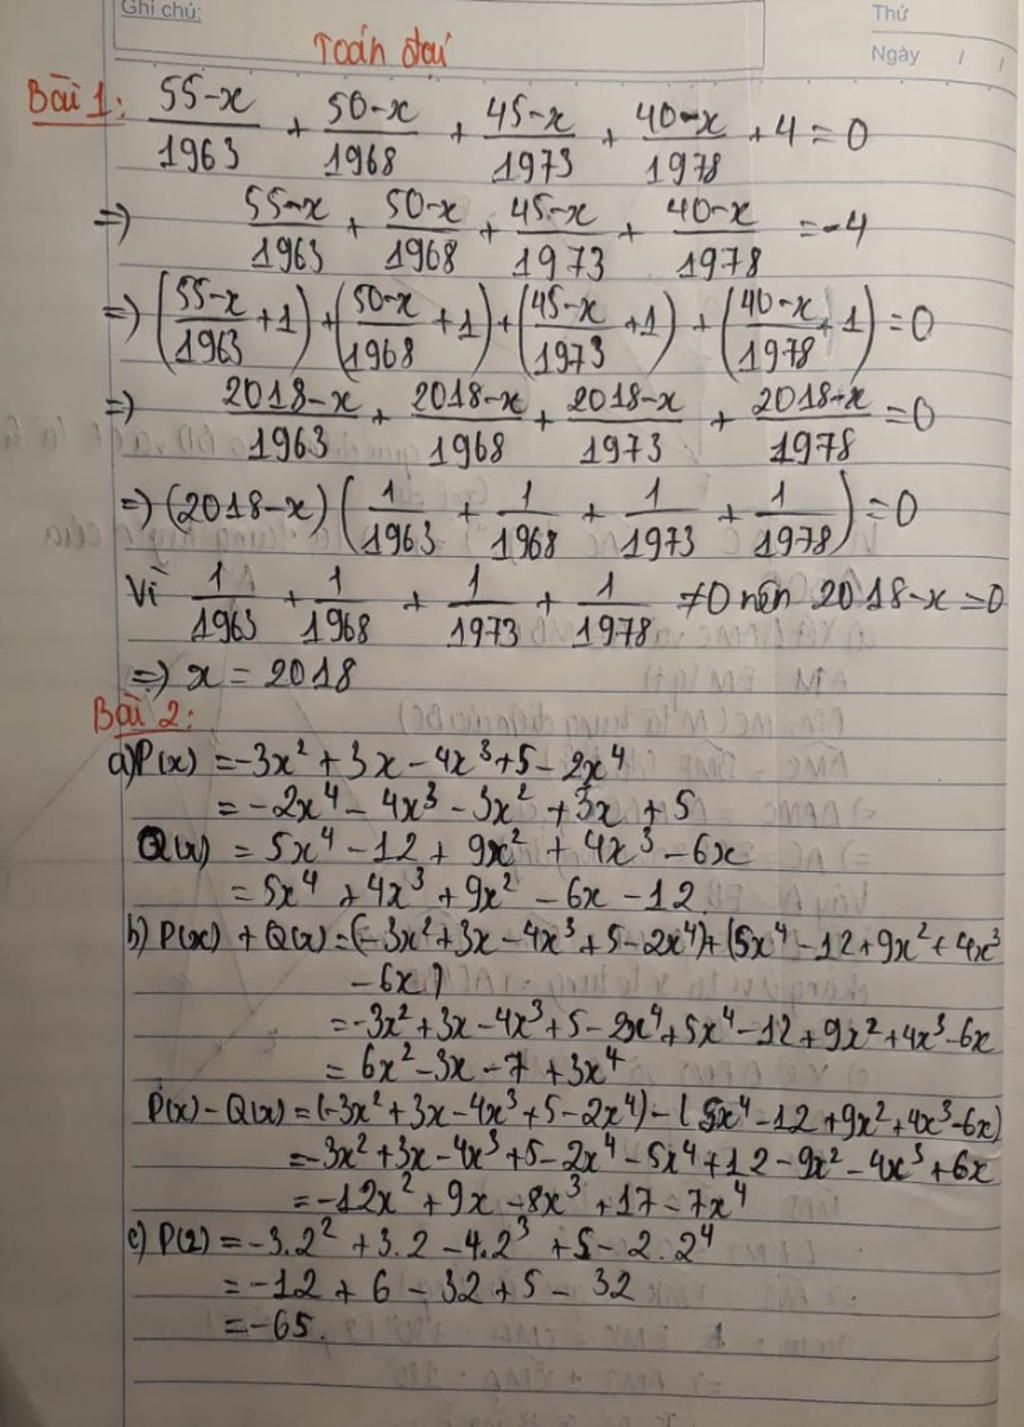 Ghi chú:
Thứ
Ngày / /
Toán đại
Bài 1: (55-x)/1963 + (50-x)/1968 + (45-x)/1973 + (40-x)/1978 + 4 = 0
=> (55-x)/1963 + (50-x)/1968 + (45-x)/1973 + (40-x)/1978 = -4
=> ((55-x)/1963 + 1) + ((50-x)/1968 + 1) + ((45-x)/1973 + 1) + ((40-x)/1978 + 1) = 0
=> (2018-x)/1963 + (2018-x)/1968 + (2018-x)/1973 + (2018-x)/1978 = 0
=> (2018-x)(1/1963 + 1/1968 + 1/1973 + 1/1978) = 0
Vì 1/1963 + 1/1968 + 1/1973 + 1/1978 ≠ 0 nên 2018-x = 0
=> x = 2018
Bài 2:
a) P(x) = -3x² + 3x - 4x³ + 5 - 2x⁴
= -2x⁴ - 4x³ - 3x² + 3x + 5
Q(x) = 5x⁴ - 12 + 9x² + 4x³ - 6x
= 5x⁴ + 4x³ + 9x² - 6x - 12
b) P(x) + Q(x) = (-3x² + 3x - 4x³ + 5 - 2x⁴) + (5x⁴ - 12 + 9x² + 4x³
- 6x)
= -3x² + 3x - 4x³ + 5 - 2x⁴ + 5x⁴ - 12 + 9x² + 4x³ - 6x
= 6x² - 3x - 7 + 3x⁴
P(x) - Q(x) = (-3x² + 3x - 4x³ + 5 - 2x⁴) - (5x⁴ - 12 + 9x² + 4x³ - 6x)
= -3x² + 3x - 4x³ + 5 - 2x⁴ - 5x⁴ + 12 - 9x² - 4x³ + 6x
= -12x² + 9x - 8x³ + 17 - 7x⁴
c) P(2) = -3.2² + 3.2 - 4.2³ + 5 - 2.2⁴
= -12 + 6 - 32 + 5 - 32
= -65.